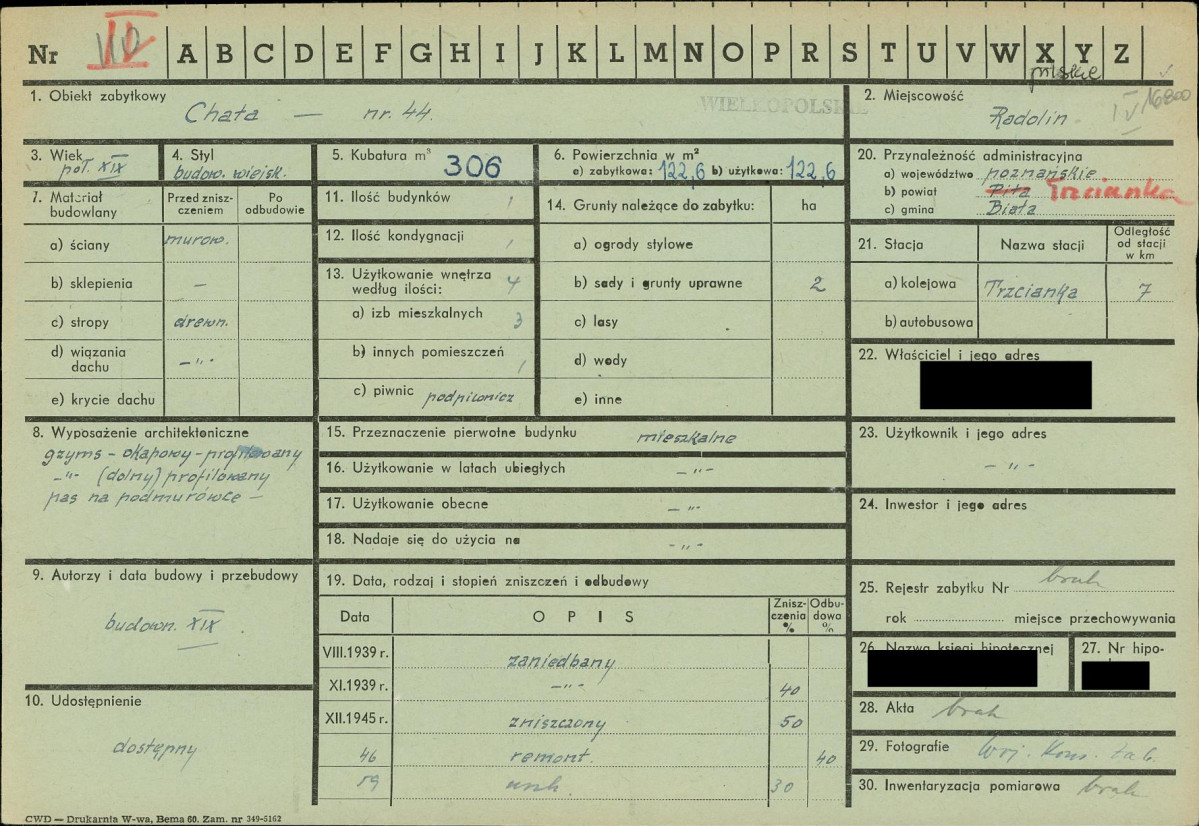 Nr IV A B C D E F G H I J K L M N O P R S T U V W X Y Z
1. Obiekt zabytkowy
Chata — nr. 44.
WIELKOPOLSKIE
2. Miejscowość
Radolin
IV 16800
3. Wiek
poł. XIX
4. Styl
budow. wiejsk.
5. Kubatura m³ 306
6. Powierzchnia w m²
a) zabytkowa: 122,6 b) użytkowa: 122,6
7. Materiał budowlany
Przed zniszczeniem
Po odbudowie
a) ściany murow.
b) sklepienia —
c) stropy drewn.
d) wiązania dachu —"—
e) krycie dachu
8. Wyposażenie architektoniczne
gzyms - okapowy - profilowany
—"— (dolny) profilowany
pas na podmurówce —
9. Autorzy i data budowy i przebudowy
budown. XIX
10. Udostępnienie
dostępny
11. Ilość budynków 1
12. Ilość kondygnacji 1
13. Użytkowanie wnętrza według ilości: 4
a) izb mieszkalnych 3
b) innych pomieszczeń 1
c) piwnic podpiwnicz
14. Grunty należące do zabytku: ha
a) ogrody stylowe
b) sady i grunty uprawne 2
c) lasy
d) wody
e) inne
15. Przeznaczenie pierwotne budynku mieszkalne
16. Użytkowanie w latach ubiegłych —"—
17. Użytkowanie obecne —"—
18. Nadaje się do użycia na —"—
19. Data, rodzaj i stopień zniszczeń i odbudowy
Data OPIS Zniszczenia % Odbudowa %
VIII.1939 r. zaniedbany
XI.1939 r. —"— 40
XII.1945 r. zniszczony 50
46 remont. 40
59 30
20. Przynależność administracyjna
a) województwo poznańskie
b) powiat Piła Trzcianka
c) gmina Biała
21. Stacja Nazwa stacji Odległość od stacji w km
a) kolejowa Trzcianka 7
b) autobusowa
22. Właściciel i jego adres
23. Użytkownik i jego adres
—"—
24. Inwestor i jego adres
25. Rejestr zabytku Nr brak
rok miejsce przechowywania
26. Nazwa księgi hipotecznej
27. Nr hipo-
28. Akta brak
29. Fotografie Woj. Kons. Zab.
30. Inwentaryzacja pomiarowa brak
CWD — Drukarnia W-wa, Bema 60. Zam. nr 349-5162